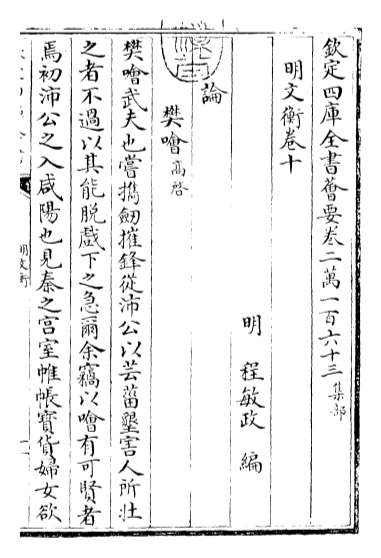 欽定四庫全書薈要卷二萬一百六十三 集部
明文衡卷十
明 程敏政 編
論
樊噲 高啓
樊噲武夫也嘗擕劒摧鋒從沛公以芸菑墾害人所壯
之者不過以其能脱戲下之急爾余竊以噲有可賢者
焉初沛公之入咸陽也見秦之宫室帷帳寳貨婦女欲
明文衡